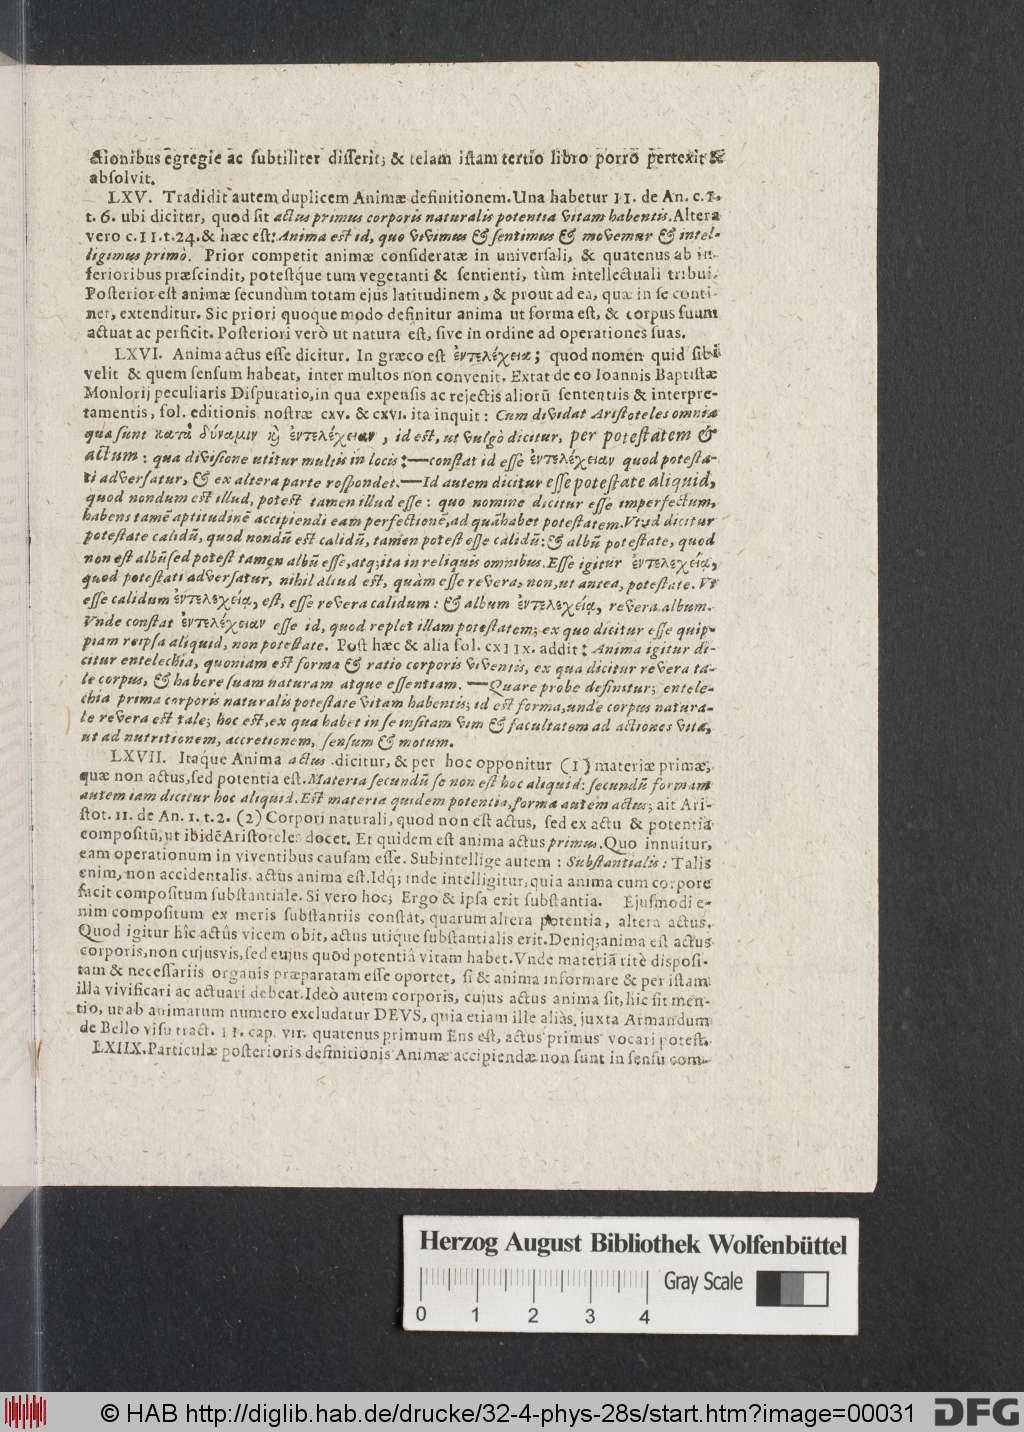 ctionibus egregie ac subtiliter disserit; & telam istam tertio libro porro pertexit &
absolvit.
LXV. Tradidit autem duplicem Animæ definitionem. Una habetur II. de An. c. 1.
t. 6. ubi dicitur, quod sit actus primus corporis naturalis potentia vitam habentis. Altera
vero c. II. t. 24. & hæc est: Anima est id, quo vivimus & sentimus & movemur & intel-
ligimus primò. Prior competit animæ consideratæ in universali, & quatenus ab in-
ferioribus præscindit, potestq́ue tum vegetanti & sentienti, tùm intellectuali tribui.
Posterior est animæ secundùm totam ejus latitudinem, & prout ad ea, quæ in se conti-
net, extenditur. Sic priori quoque modo definitur anima ut forma est, & corpus suum
actuat ac perficit. Posteriori verò ut natura est, sive in ordine ad operationes suas.
LXVI. Anima actus esse dicitur. In græco est ἐντελέχεια; quod nomen quid sibi
velit & quem sensum habeat, inter multos non convenit. Extat de eo Ioannis Baptistæ
Monlorij peculiaris Disputatio, in qua expensis ac rejectis aliorũ sententiis & interpre-
tamentis, fol. editionis nostræ cxv. & cxvi. ita inquit: Cum dividat Aristoteles omnia
quæ sunt κατὰ δύναμιν ϗ ἐντελέχειαν, id est, ut vulgò dicitur, per potestatem &
actum: qua divisione utitur multis in locis:—constat id esse ἐντελέχειαν quod potesta-
ti adversatur, & ex altera parte respondet.—Id autem dicitur esse potestate aliquid,
quod nondum est illud, potest tamen illud esse: quo nomine dicitur esse imperfectum,
habens tamẽ aptitudinẽ accipiendi eam perfectionẽ, ad quã habet potestatem. Ut id dicitur
potestate calidũ, quod nondũ est calidũ, tamen potest esse calidũ: & albũ potestate, quod
non est albũ sed potest tamen albũ esse, atq; ita in reliquis omnibus. Esse igitur ἐντελεχείᾳ,
quod potestati adversatur, nihil aliud est, quàm esse revera, non, ut antea, potestate. Ut
esse calidum ἐντελεχείᾳ, est, esse revera calidum: & album ἐντελεχείᾳ, revera album.
Vnde constat ἐντελέχειαν esse id, quod replet illam potestatem; ex quo dicitur esse quip-
piam reipsa aliquid, non potestate. Post hæc & alia fol. cxIIx. addit: Anima igitur di-
citur entelechia, quoniam est forma & ratio corporis viventis, ex qua dicitur revera ta-
le corpus, & habere suam naturam atque essentiam.—Quare probe definitur; entele-
chia prima corporis naturalis potestate vitam habentis; id est forma, unde corpus natura-
le revera est tale; hoc est, ex qua habet in se insitam vim & facultatem ad actiones vitæ,
ut ad nutritionem, accretionem, sensum & motum.
LXVII. Itaque Anima actus dicitur, & per hoc opponitur (1) materiæ primæ;
quæ non actus, sed potentia est. Materia secundũ se non est hoc aliquid: secundũ formam
autem iam dicitur hoc aliquid. Est materia quidem potentia, forma autem actus; ait Ari-
stot. II. de An. 1. t. 2. (2) Corpori naturali, quod non est actus, sed ex actu & potentia
compositũ, ut ibidẽ Aristoteles docet. Et quidem est anima actus primus. Quo innuitur,
eam operationum in viventibus causam esse. Subintellige autem: Substantialis: Talis
enim, non accidentalis, actus anima est. Idq; inde intelligitur, quia anima cum corpore
facit compositum substantiale. Si vero hoc; Ergo & ipsa erit substantia. Ejusmodi e-
nim compositum ex meris substantiis constat, quarum altera potentia, altera actus.
Quod igitur hîc actûs vicem obit, actus utique substantialis erit. Deniq; anima est actus
corporis, non cujusvis, sed eujus quod potentiâ vitam habet. Vnde materiã ritè disposi-
tam & necessariis organis præparatam esse oportet, si & anima informare & per istam
illa vivificari ac actuari debeat. Ideò autem corporis, cujus actus anima sit, hîc fit men-
tio, ut ab animarum numero excludatur DEVS, quia etiam ille aliàs juxta Armandum
de Bello visu tract. II. cap. VII. quatenus primum Ens est, actus primus vocari potest.
LXIIX. Particulæ posterioris definitionis Animæ accipiendæ non sunt in sensu com-
Herzog August Bibliothek Wolfenbüttel
Gray Scale
0 1 2 3 4
© HAB http://diglib.hab.de/drucke/32-4-phys-28s/start.htm?image=00031
DFG